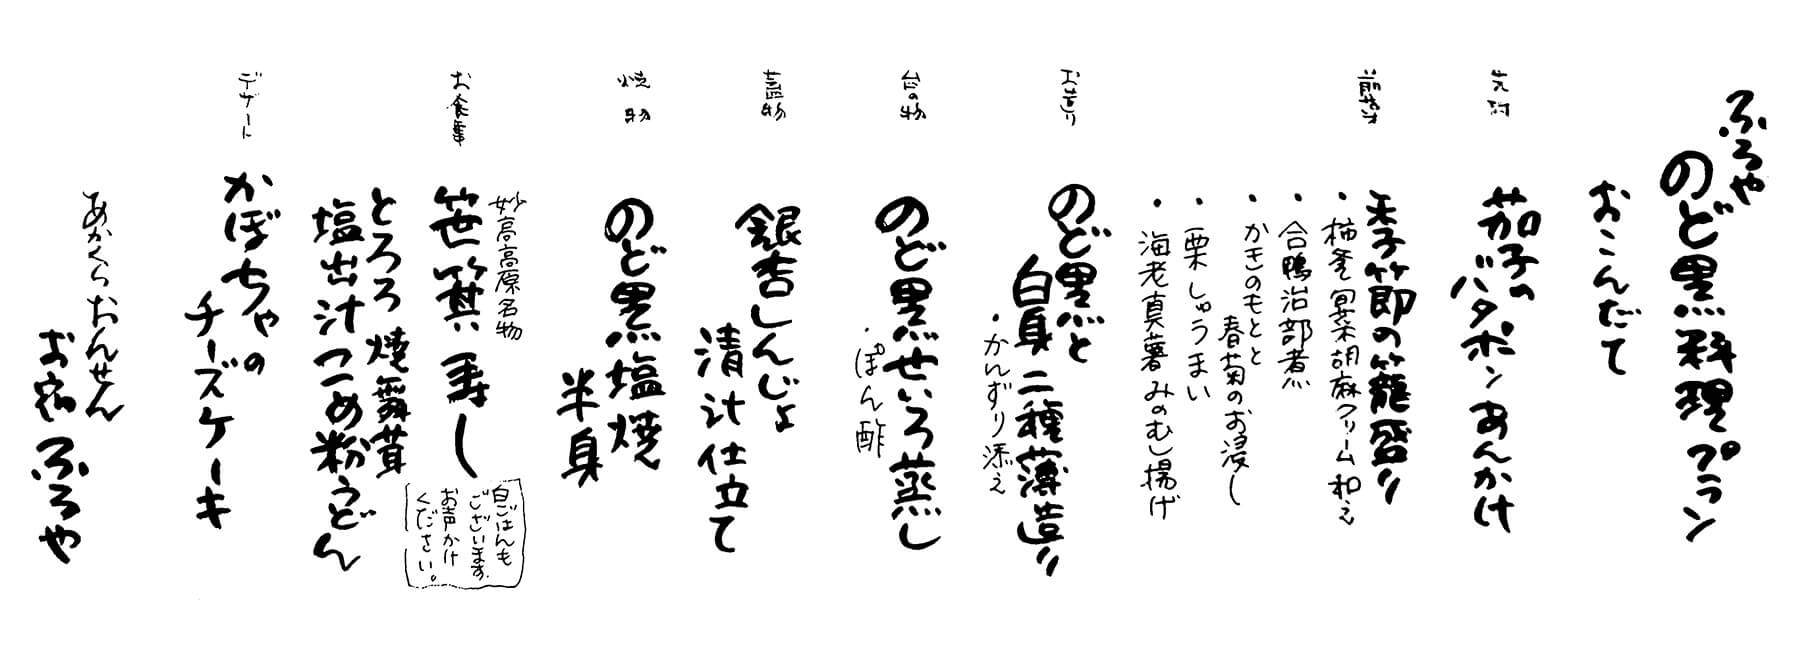 ふろや
のど黒料理プラン
おこんだて
先附
茄子の
バタポンあんかけ
前菜
季節の籠盛り
・柿釜 胡麻クリーム和え
・合鴨治部煮
・かきのもとと
春菊のお浸し
・栗しゅうまい
・海老真薯みのむし揚げ
お造り
のど黒と
白身二種薄造り
・かんずり添え
台の物
のど黒せいろ蒸し
・ぽん酢
蓋物
銀杏しんじょ
清汁仕立て
焼物
のど黒塩焼
半身
お食事
妙高高原名物
笹箕寿し
白ごはんも
ございます。
お声かけ
ください。
とろろ 焼舞茸
塩出汁つめ粉うどん
デザート
かぼちゃの
チーズケーキ
あかくらおんせん
お宿ふろや